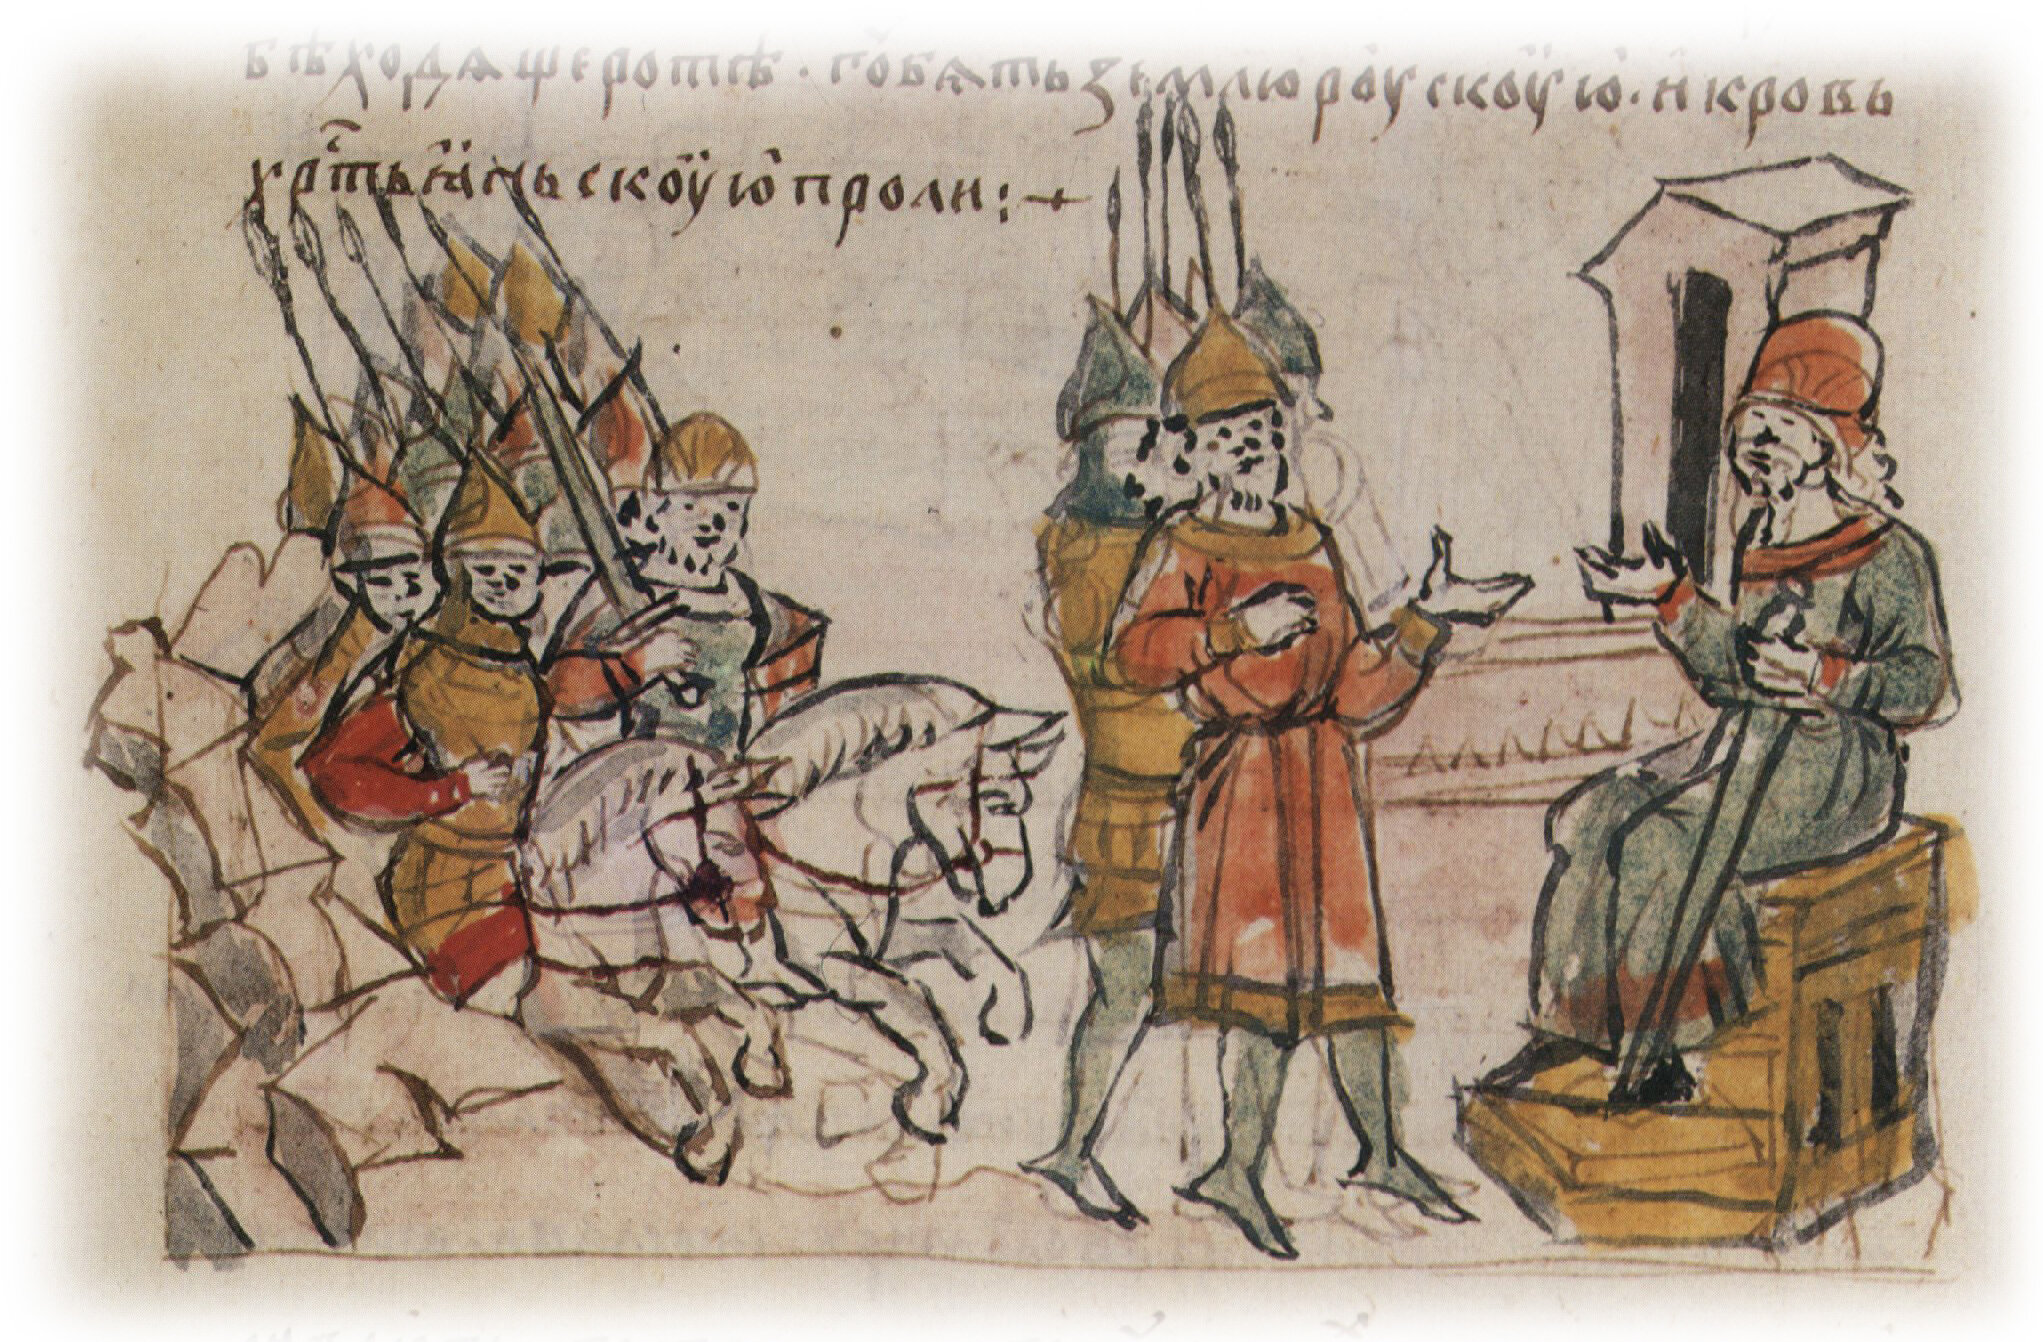 бѣходѧщеротѣ · гоубѧть земьлюроускоую · и кровь
хрⷭ҇тьꙗньскоую проли : +